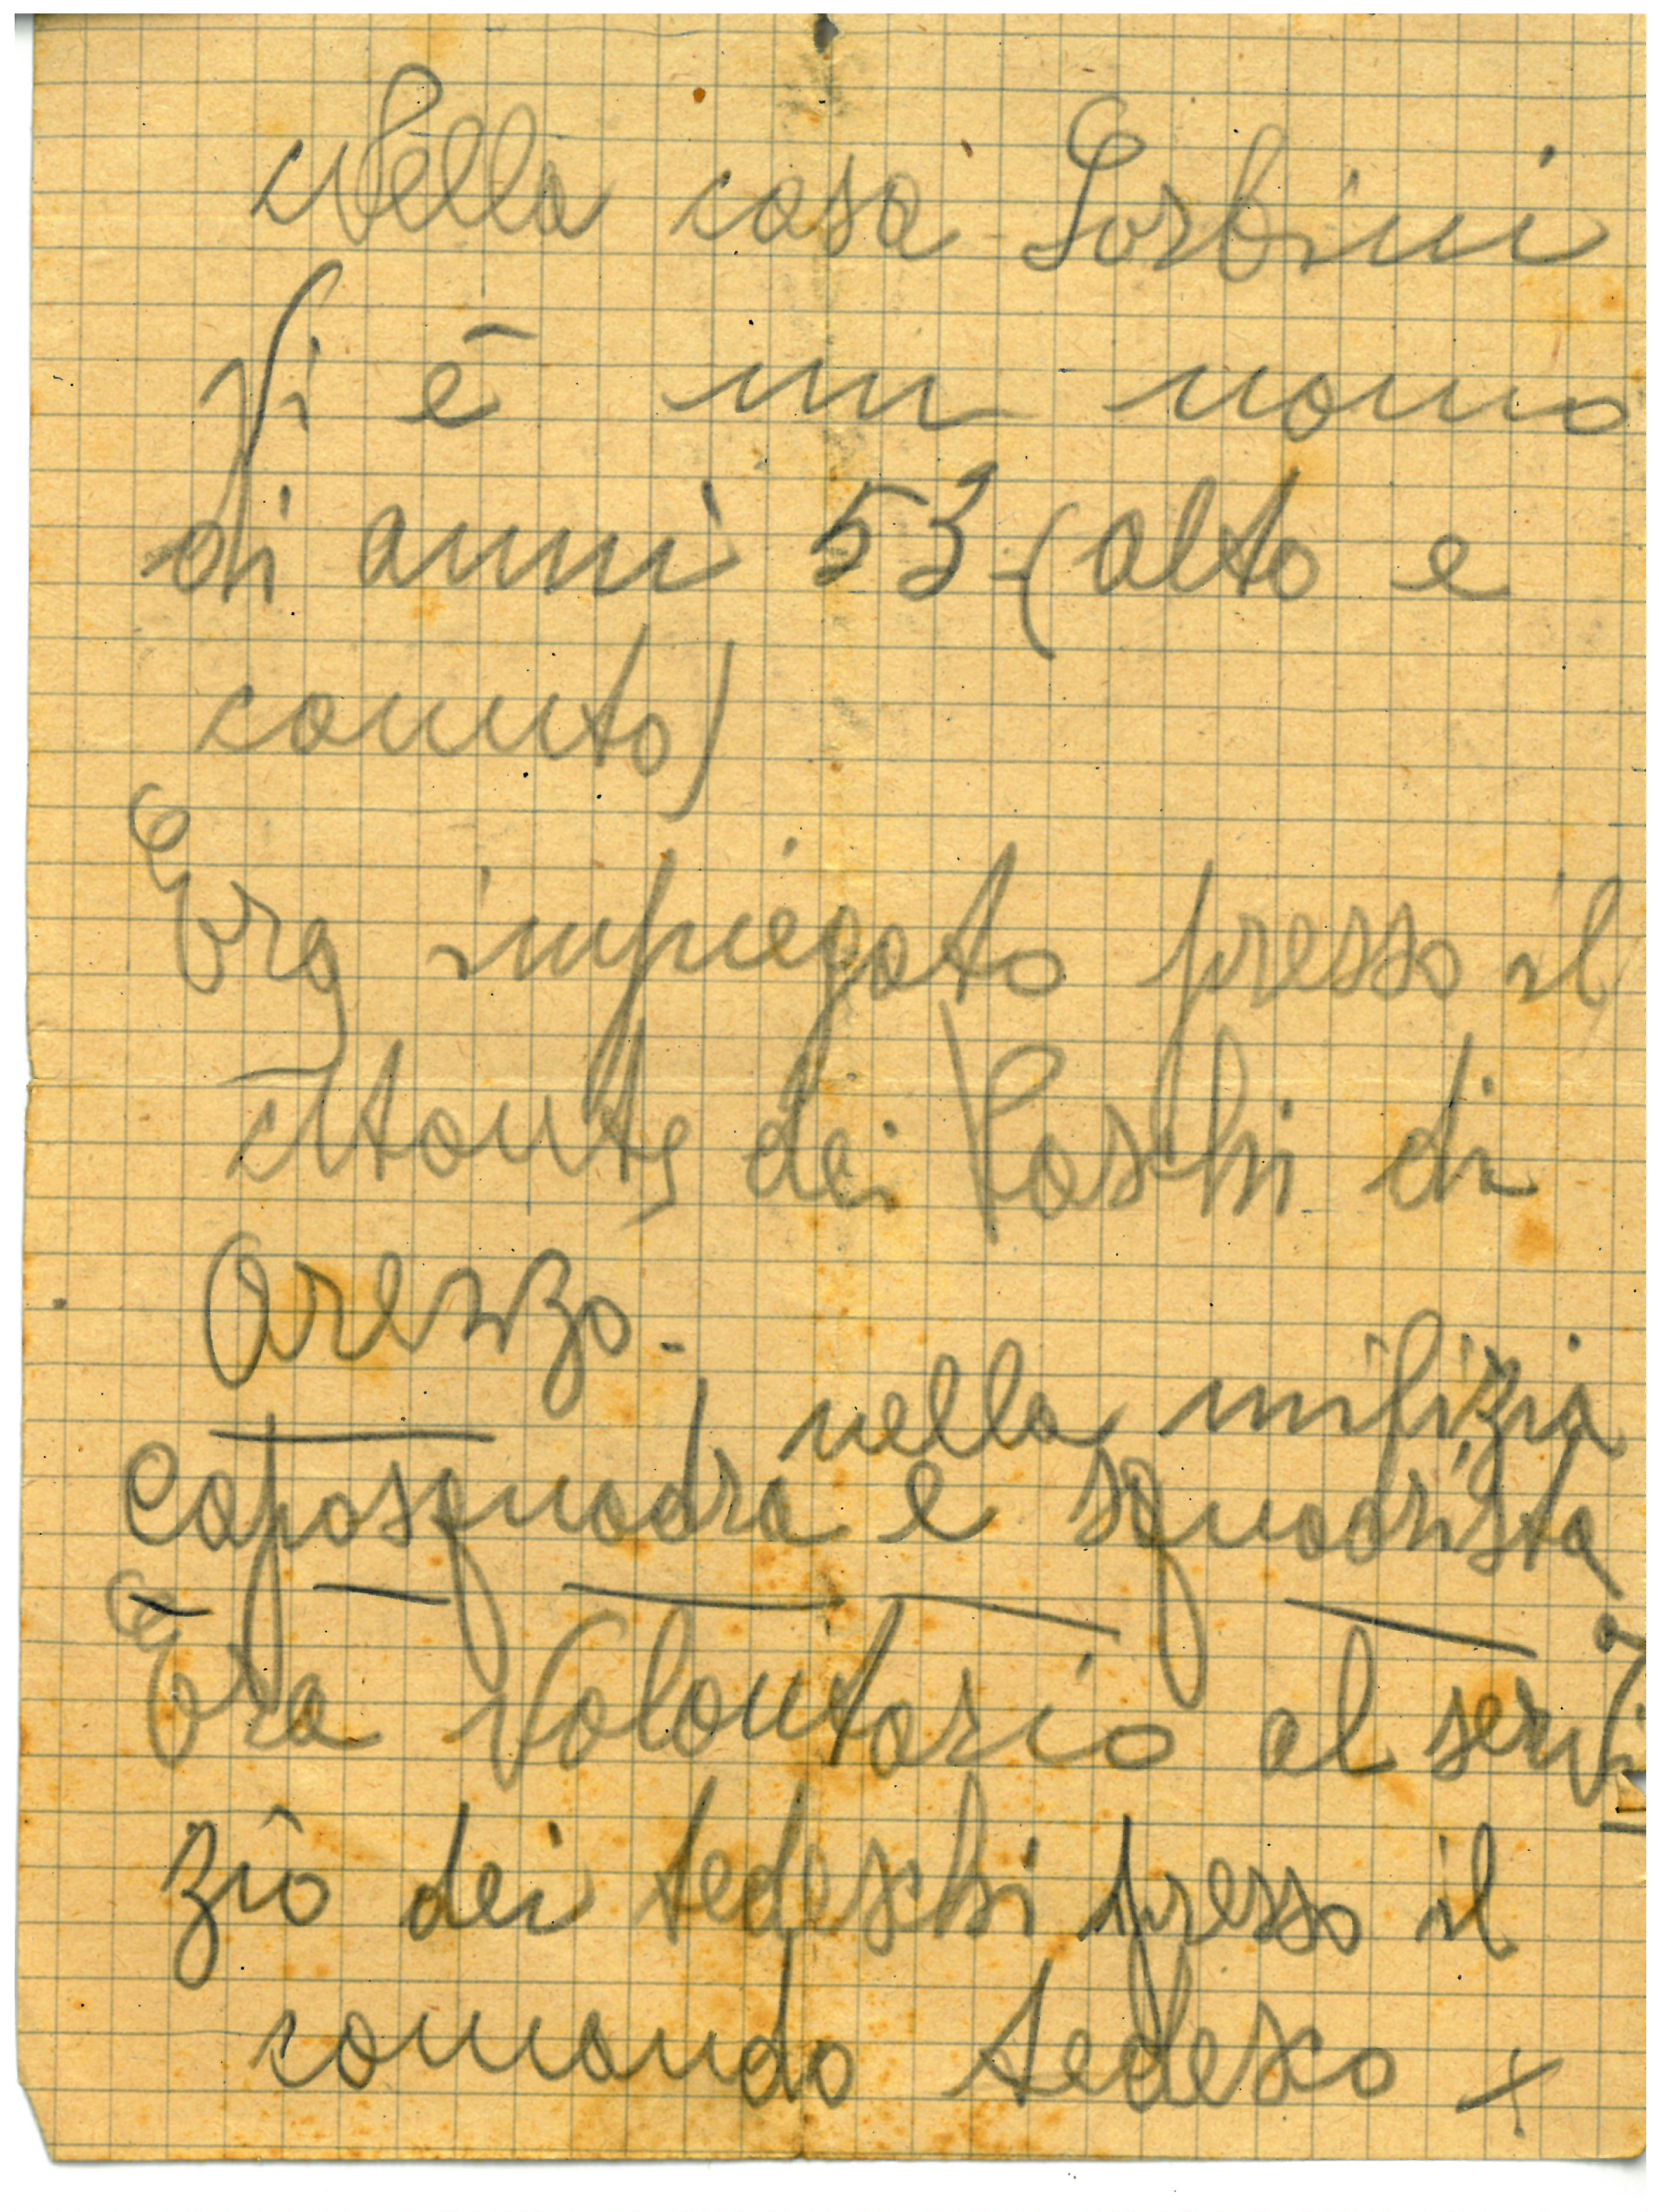 Nella casa Sorbini
Vi è un uomo
di anni 53 (alto e
canuto)
Era impiegato presso il
Monte dei Paschi di
Arezzo.-
nella milizia
caposquadra e squadrista
Era Volontario al servi
zio dei tedeschi presso il
comando tedesco +